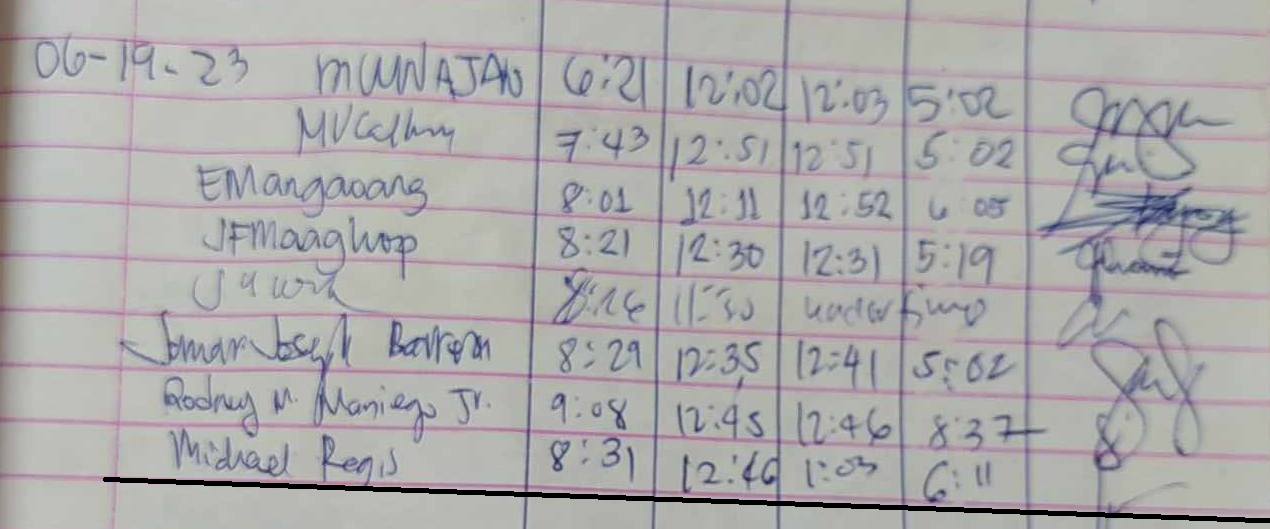 06-19-23 MUNAJAO 6:21 12:02 12:03 5:02
7:43 12:51 12:51 5:02
EMangaoang 8:01 12:11 12:52 6 05
JFMaaghop 8:21 12:30 12:31 5:19
8:26 11:30 under time
Jomar Joseph 8:29 12:35 12:41 5:02
Rodney M. Maniego Jr. 9:08 12:45 12:46 8:37
Michael Regis 8:31 12:46 1:03 6:11